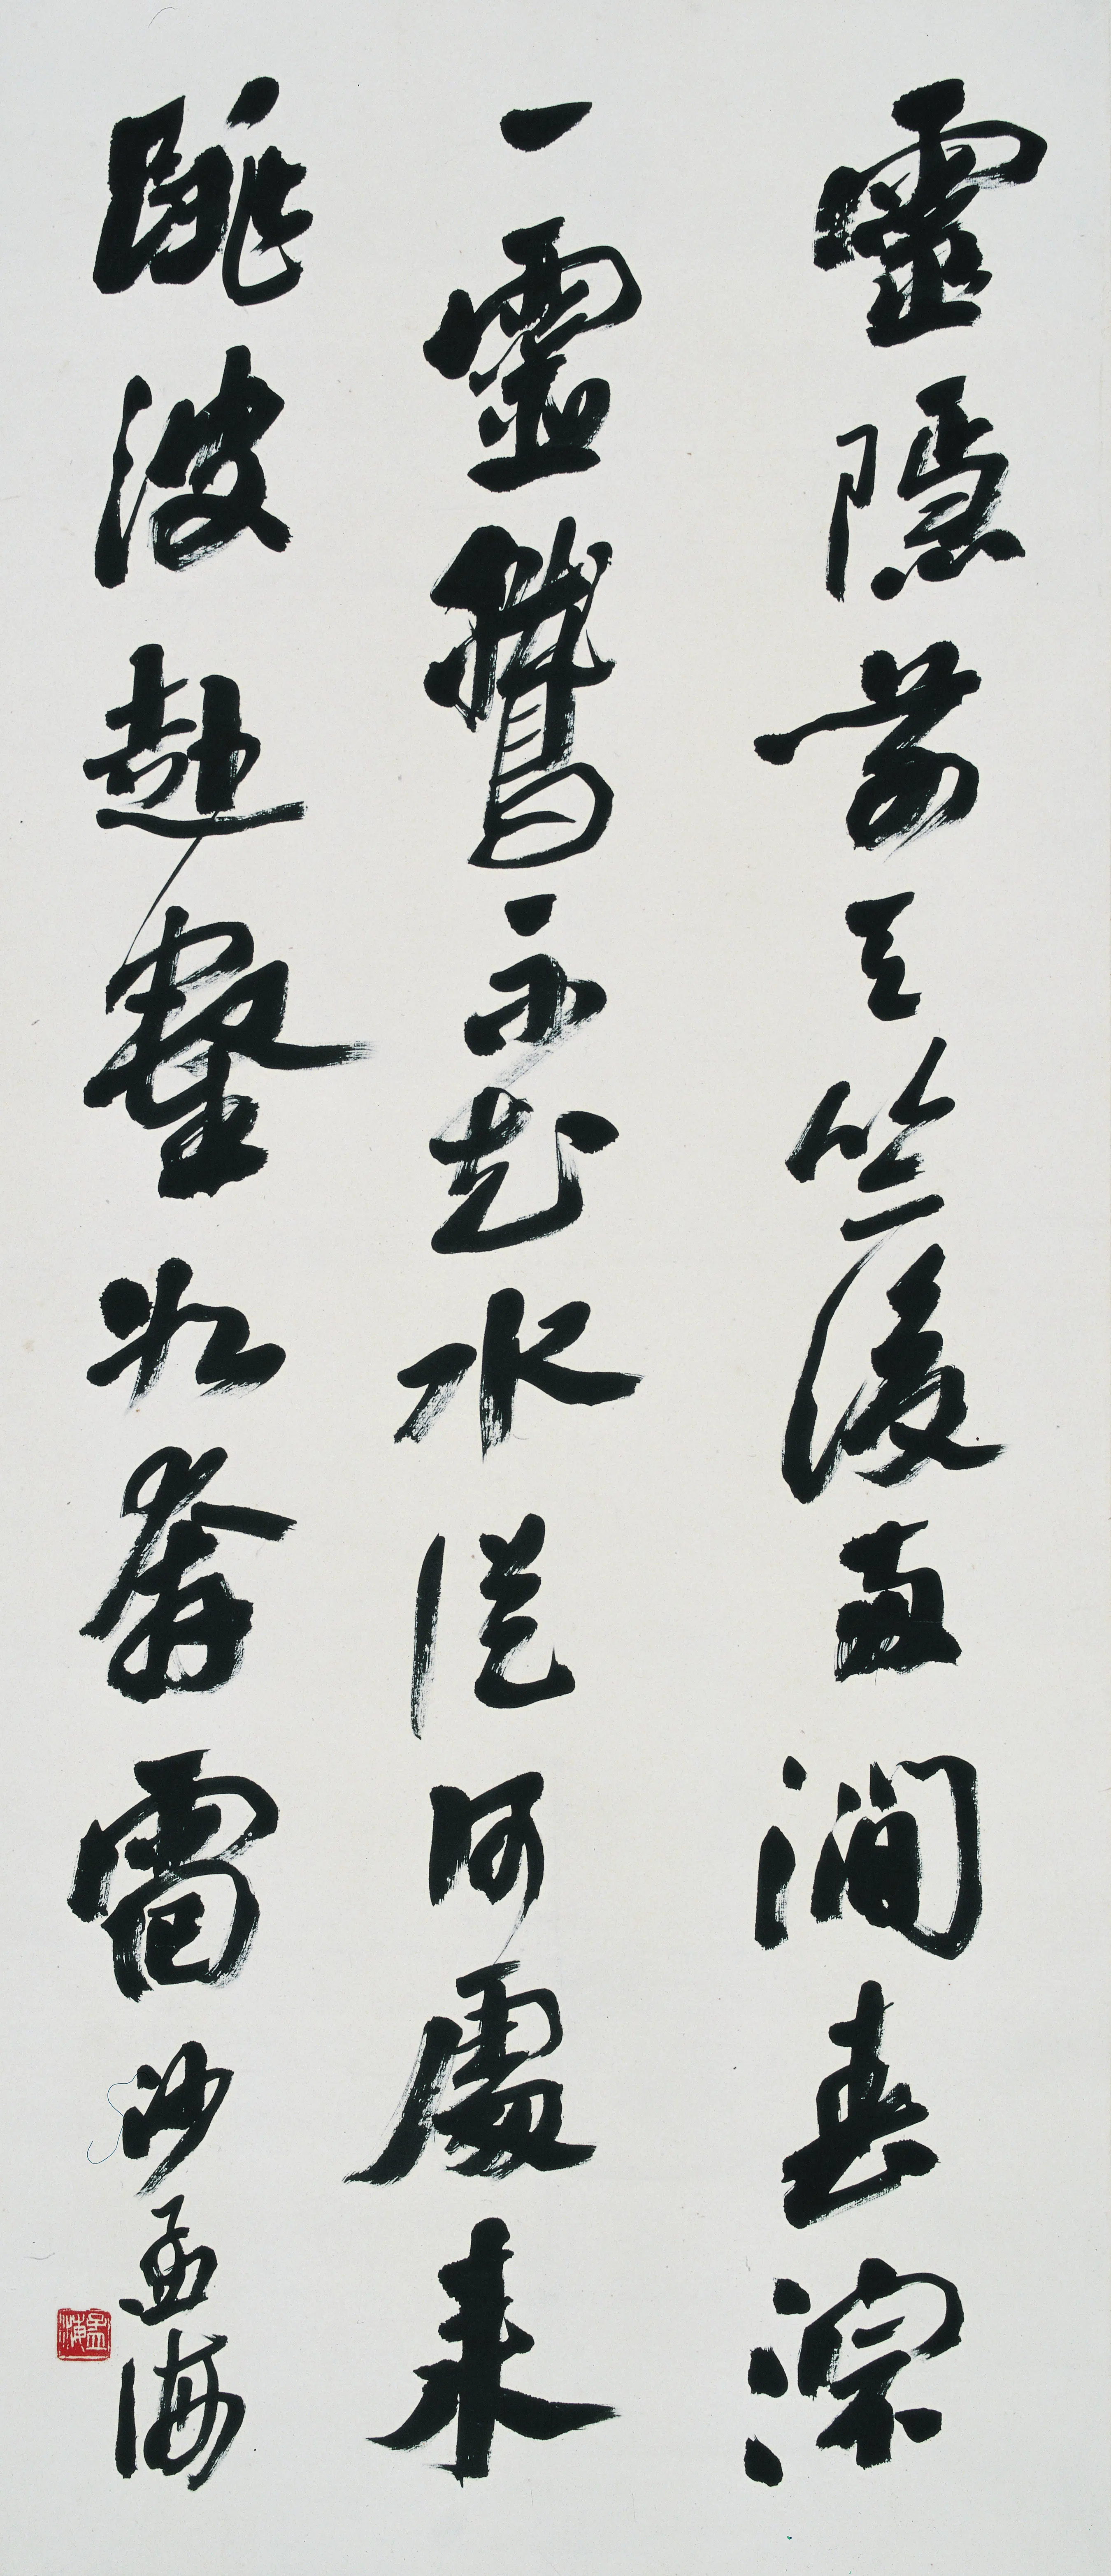 靈隱前天竺後兩澗春淙
一靈鷲不知水從何處來
跳波赴壑如奔雷 沙孟海
孟海